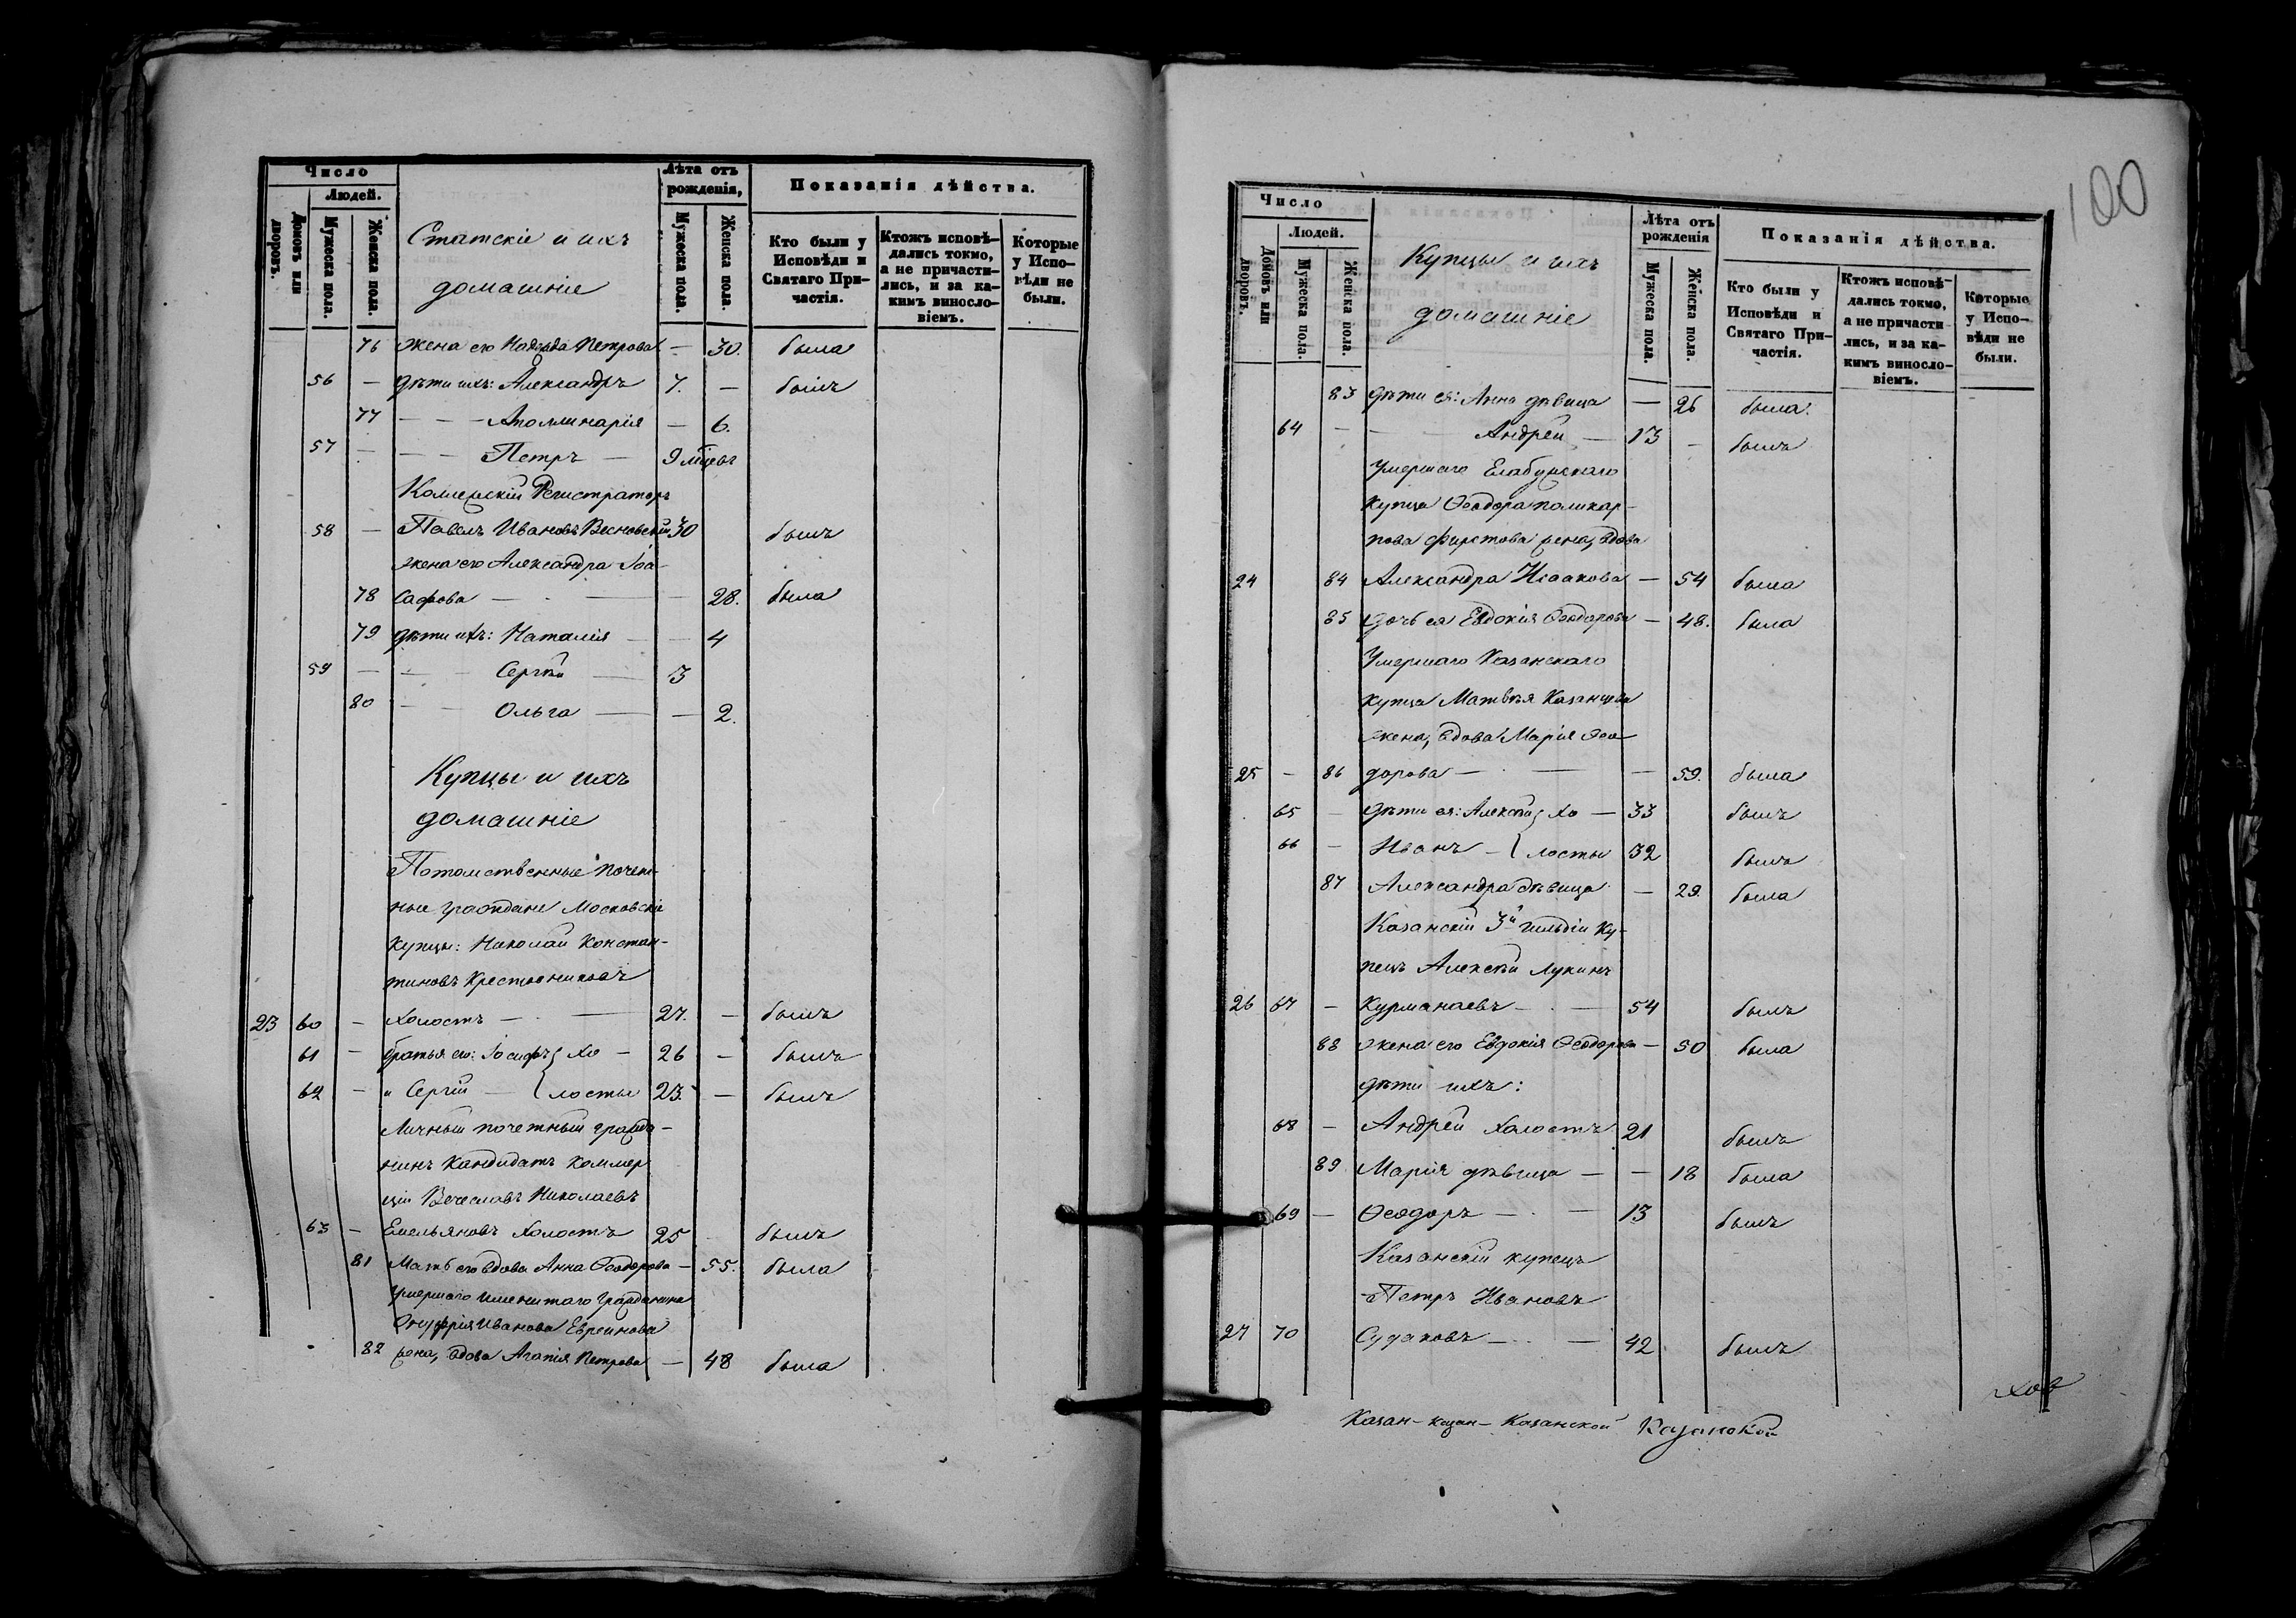 Число
Людей.
Домовъ или дворовъ.
Мужеска пола.
Женска пола.
Статскіе и ихъ
домашніе
Лѣта отъ рожденія,
Мужеска пола.
Женска пола.
Показанія дѣйства.
Кто были у Исповѣди и Святаго Причастія.
Ктожъ исповѣдались токмо, а не причастились, и за какимъ винословіемъ.
Которые у Исповѣди не были.
76 жена его Надежда Петрова — 30. была
56 — дѣти ихъ: Александръ 7. — былъ
77 — — Аполлинарія — 6.
57 — — — Петръ — 9 м͠цевъ
Коллежскій Регистраторъ
58 — Павелъ Ивановъ Весновскій 30 былъ
жена его Александра Іоа-
78 сафова — — — 28. была
79 дѣти ихъ: Наталія — — 4
59 — — — Сергѣй — 3
80 — — Ольга — — 2.
Купцы и ихъ
домашніе
Потомственные почет-
ные граждане Московскіе
купцы: Николай Констан-
тиновъ Крестовниковъ
23 60 — холостъ — — 27. — былъ
61 — братья его: Іосифъ } хо — 26 — былъ
62 — и Сергій — { лосты 23. — былъ
Личный почетный гражда-
нинъ Кандидатъ Коммер
ціи Вячеславъ Николаевъ
63 — Емельяновъ холостъ 25 былъ
81 Мать его вдова Анна Ѳеодорова — 55. была
Умершаго именитаго гражданина
Онуфрія Иванова Евреинова
82 жена, вдова Агапія Петрова — 48 была
100
Число
Людей.
Домовъ или дворовъ.
Мужеска пола.
Женска пола.
Купцы и ихъ
домашніе
Лѣта отъ рожденія
Мужеска пола.
Женска пола.
Показанія дѣйства.
Кто были у Исповѣди и Святаго Причастія.
Ктожъ исповѣдались токмо, а не причастились, и за какимъ винословіемъ.
Которые у Исповѣди не были.
83 дѣти ея: Анна дѣвица — 26 была.
64 — — Андрей — 13 — былъ
Умершаго Елабужскаго
купца Ѳеодора поликар-
пова Фирстова жена, вдова
24 84 Александра Исаакова — 54 была
85 дочь ея Евдокія Ѳеодорова — 48. была
Умершаго Казанскаго
купца Матвѣя Казанцева
жена, вдова Марія Ѳео-
25 — 86 дорова — — — 59. была
65 — дѣти ея: Алексѣй } хо — 33 былъ
66 — Иванъ — { лосты 32 былъ
87 Александра дѣвица — 29. была
Казанскій 3й гильдіи ку-
пецъ Алексѣй Лукинъ
26 67 — Курманаевъ — — 54 былъ
88 жена его Евдокія Ѳеодорова — 50 была
дѣти ихъ:
68 — Андрей холостъ 21 былъ
89 Марія дѣвица — — 18 была
69 — Ѳеодоръ — — 13 былъ
Казанскій купецъ
Петръ Ивановъ
27 70 Судаковъ — — 42 былъ
хов
Казан- казан- Казанской Казанской